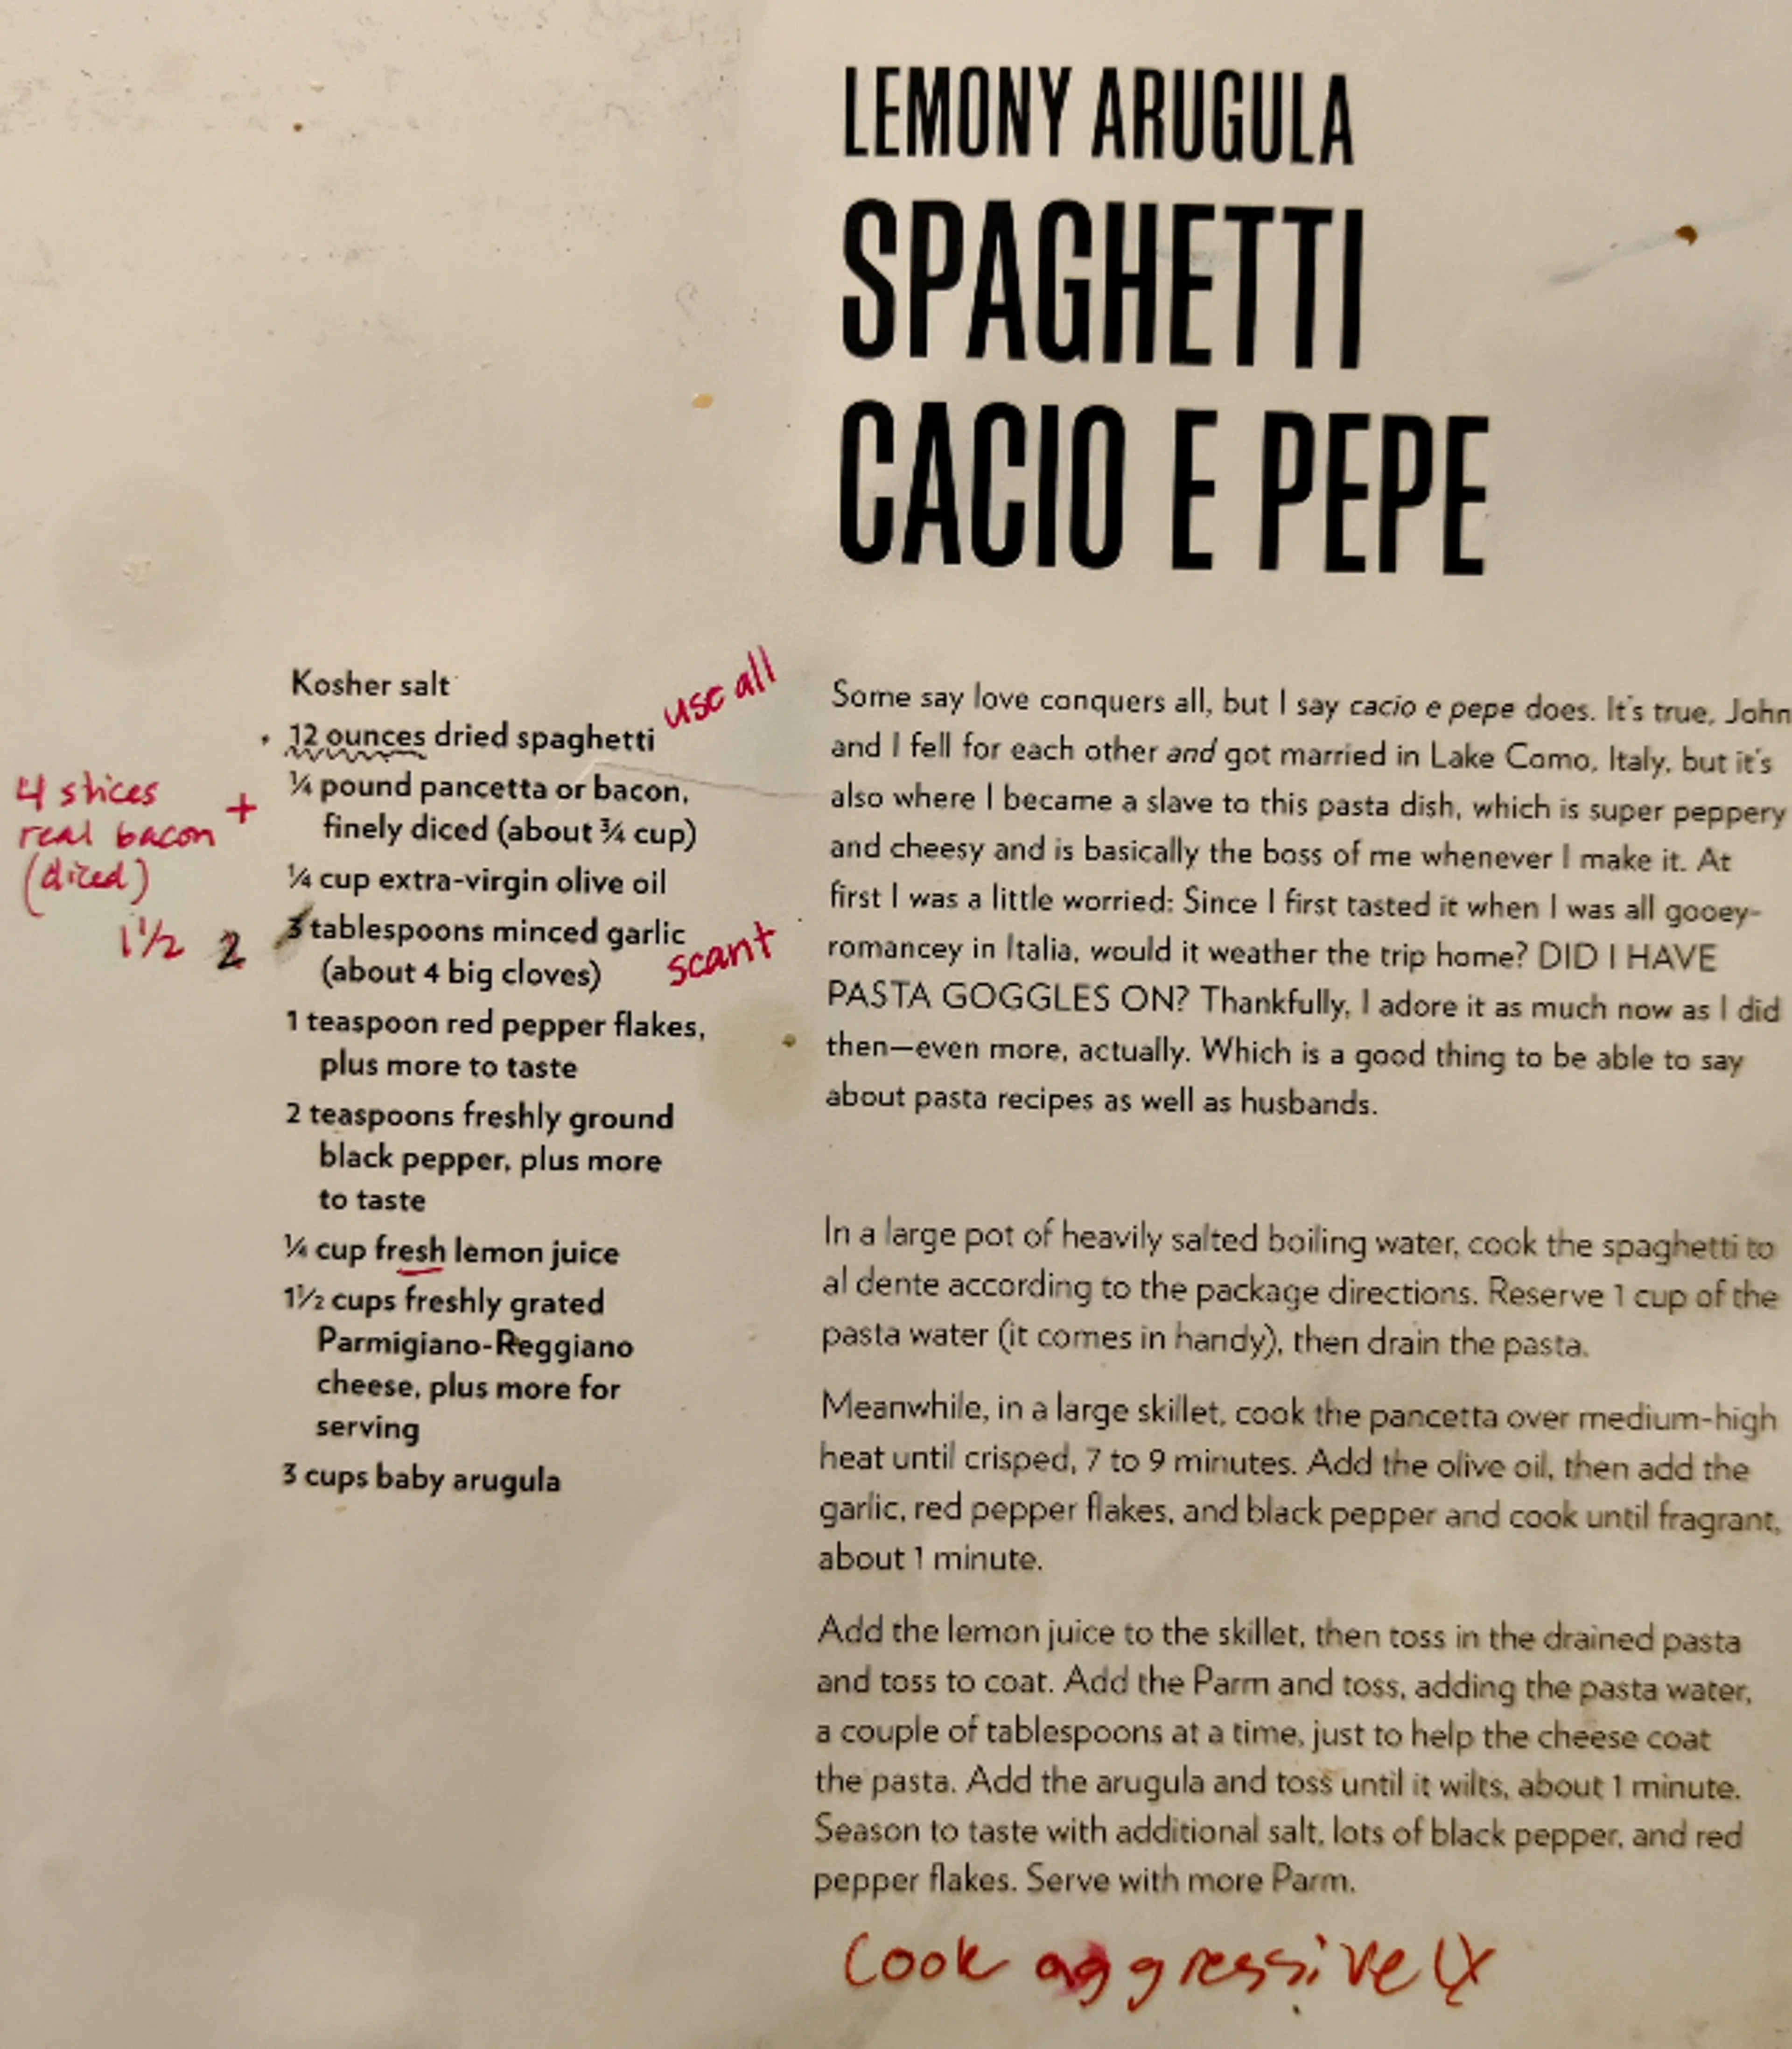 LEMONY ARUGULA
SPAGHETTI
CACIO E PEPE
Kosher salt
use all
12 ounces dried spaghetti
4 slices
real bacon
(diced)
+
¼ pound pancetta or bacon,
finely diced (about ¾ cup)
¼ cup extra-virgin olive oil
1½ 2
3 tablespoons minced garlic
(about 4 big cloves)
scant
1 teaspoon red pepper flakes,
plus more to taste
2 teaspoons freshly ground
black pepper, plus more
to taste
¼ cup fresh lemon juice
1½ cups freshly grated
Parmigiano-Reggiano
cheese, plus more for
serving
3 cups baby arugula
Some say love conquers all, but I say cacio e pepe does. It's true, John
and I fell for each other and got married in Lake Como, Italy, but it's
also where I became a slave to this pasta dish, which is super peppery
and cheesy and is basically the boss of me whenever I make it. At
first I was a little worried: Since I first tasted it when I was all gooey-
romancey in Italia, would it weather the trip home? DID I HAVE
PASTA GOGGLES ON? Thankfully, I adore it as much now as I did
then—even more, actually. Which is a good thing to be able to say
about pasta recipes as well as husbands.
In a large pot of heavily salted boiling water, cook the spaghetti to
al dente according to the package directions. Reserve 1 cup of the
pasta water (it comes in handy), then drain the pasta.
Meanwhile, in a large skillet, cook the pancetta over medium-high
heat until crisped, 7 to 9 minutes. Add the olive oil, then add the
garlic, red pepper flakes, and black pepper and cook until fragrant,
about 1 minute.
Add the lemon juice to the skillet, then toss in the drained pasta
and toss to coat. Add the Parm and toss, adding the pasta water,
a couple of tablespoons at a time, just to help the cheese coat
the pasta. Add the arugula and toss until it wilts, about 1 minute.
Season to taste with additional salt, lots of black pepper, and red
pepper flakes. Serve with more Parm.
Cook aggressively